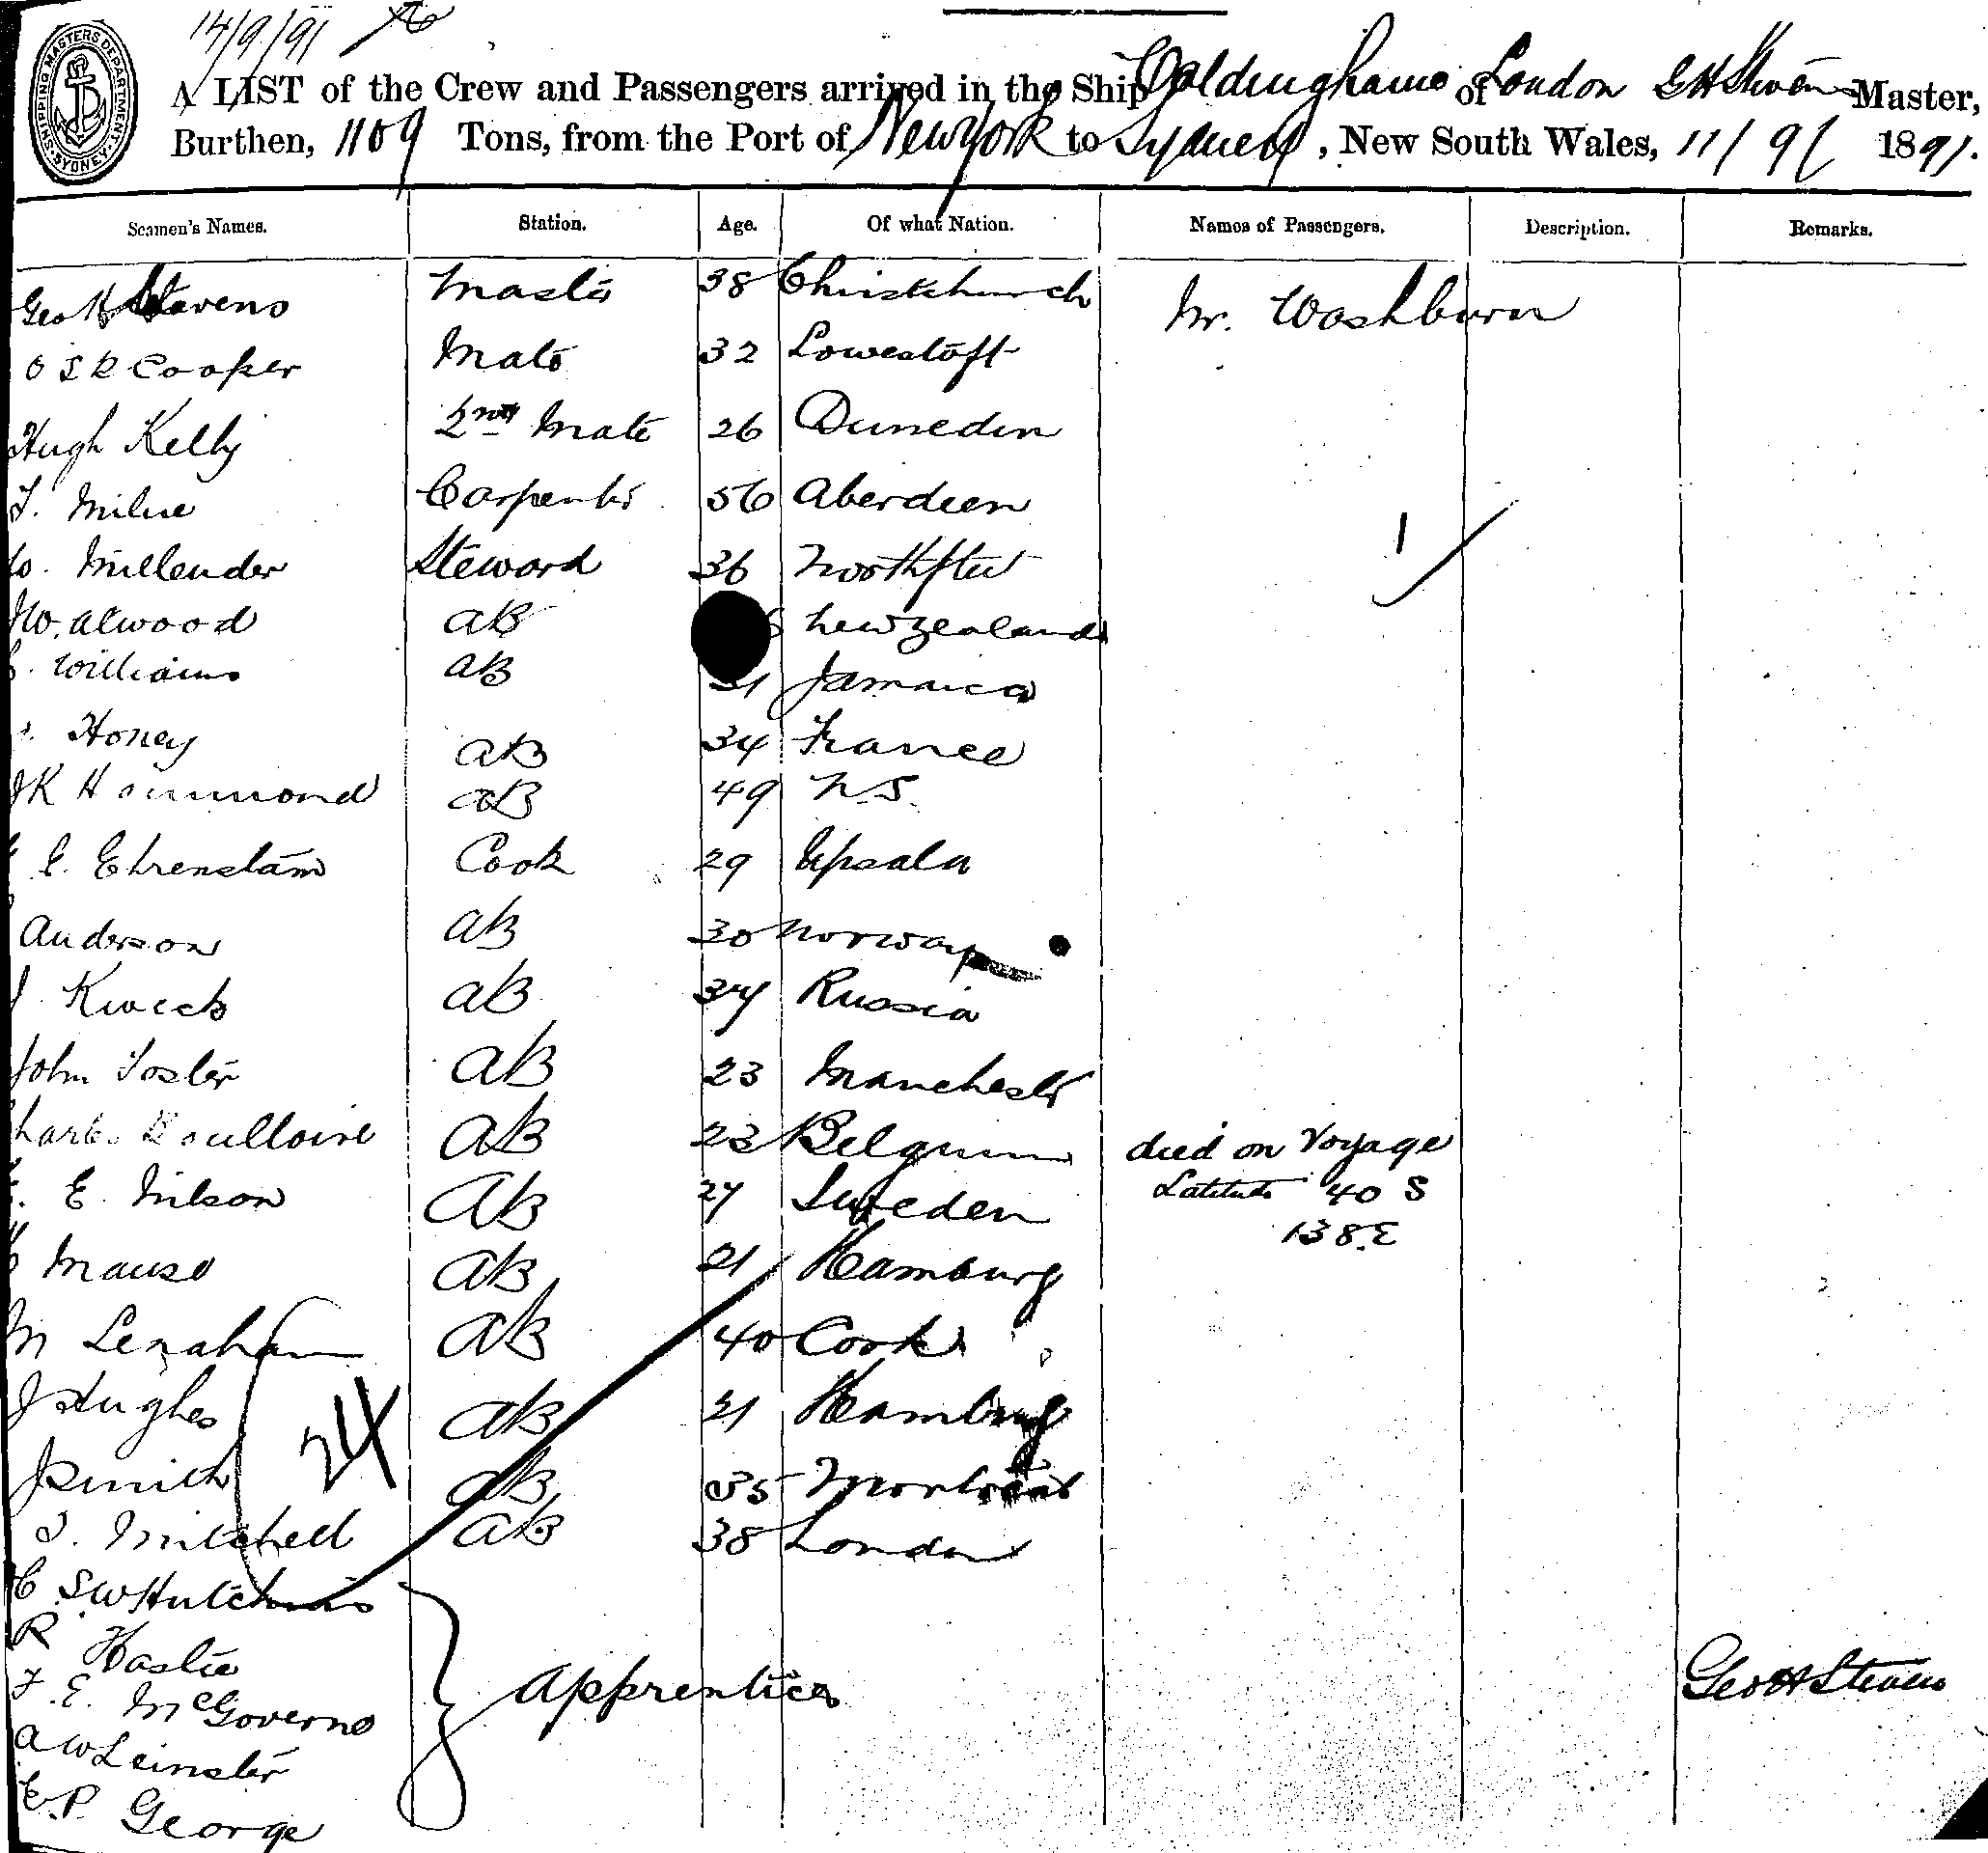 14/9/91
SHIPPING MASTERS DEPARTMENT SYDNEY
A LIST of the Crew and Passengers arrived in the Ship Coldinghame of London G H Stevens Master,
Burthen, 1109 Tons, from the Port of New York to Sydney, New South Wales, 11/9/ 1891.
Seamen's Names. Station. Age. Of what Nation. Names of Passengers. Description. Remarks.
Geo H Stevens Master 38 Christchurch Mr. Washburn
O S R Cooper Mate 32 Lowestoft
Hugh Kelly 2nd Mate 26 Dunedin
T. Milne Carpenter 56 Aberdeen
Millender Steward 36 1
W. Alwood AB New Zealand
Williams AB 31 Jamaica
Honey AB 34 France
J K Hammond AB 49 N.S.
E. Ehrenstam Cook 29 Upsala
Anderson AB 30 Norway
J Kweek AB 34 Russia
John Foster AB 23 Manchester
AB 23 Belgium died on Voyage
E. Nilson AB 24 Sweden Latitude 40 S
138.E
Mauso AB 21 Hamburg
M Lenahan AB 40 Cork
J Hughes AB 21 Hamburg
24
J Smith AB 35 Montreal
J. Mitchell AB 38 London
C S W Hutchins
R Hastie
F. E. McGovern Apprentices Geo H Stevens
A W Leinster
E. P. George